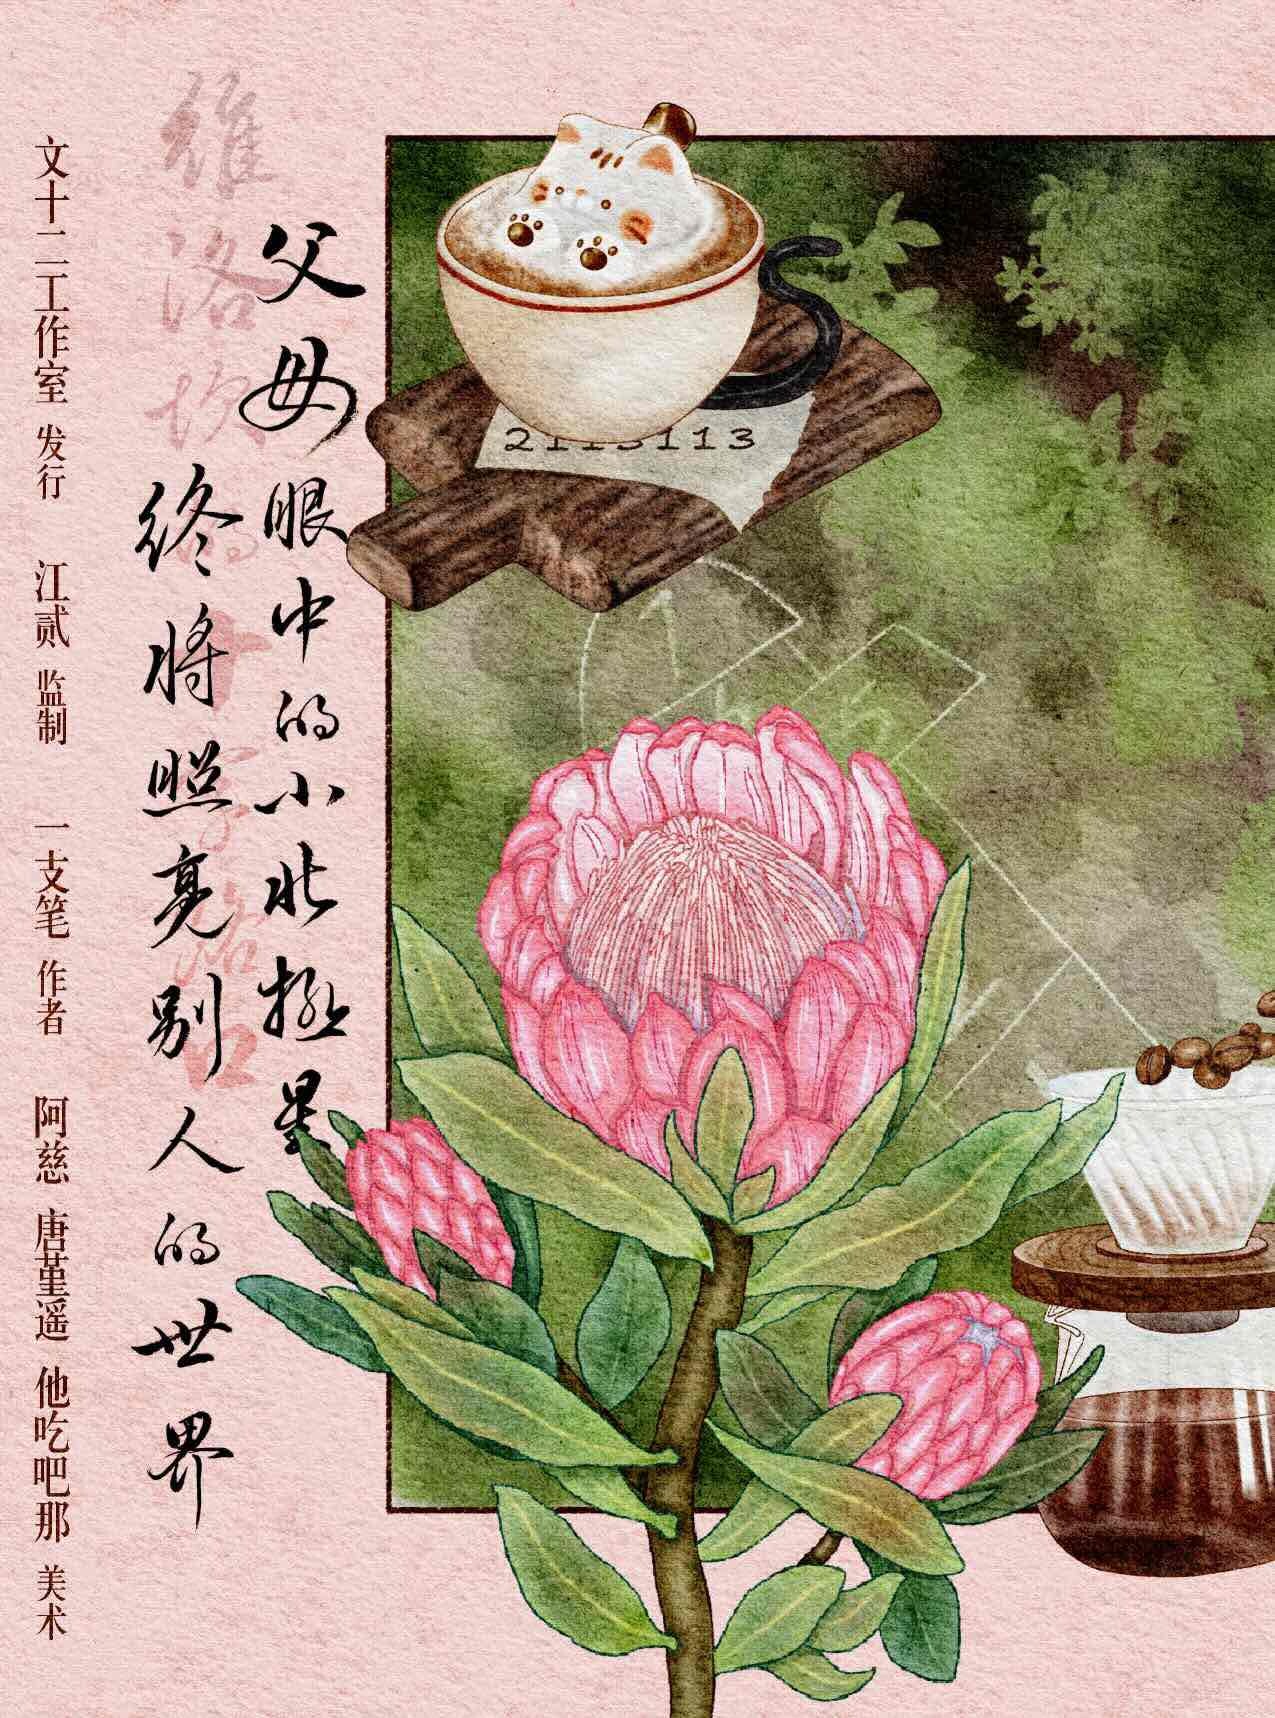 父母眼中的小北极星
终将照亮别人的世界
维洛坎的十字路口
文十二工作室 发行 江贰 监制 一支笔 作者 阿慈 唐堇遥 他吃吧那 美术
2113113